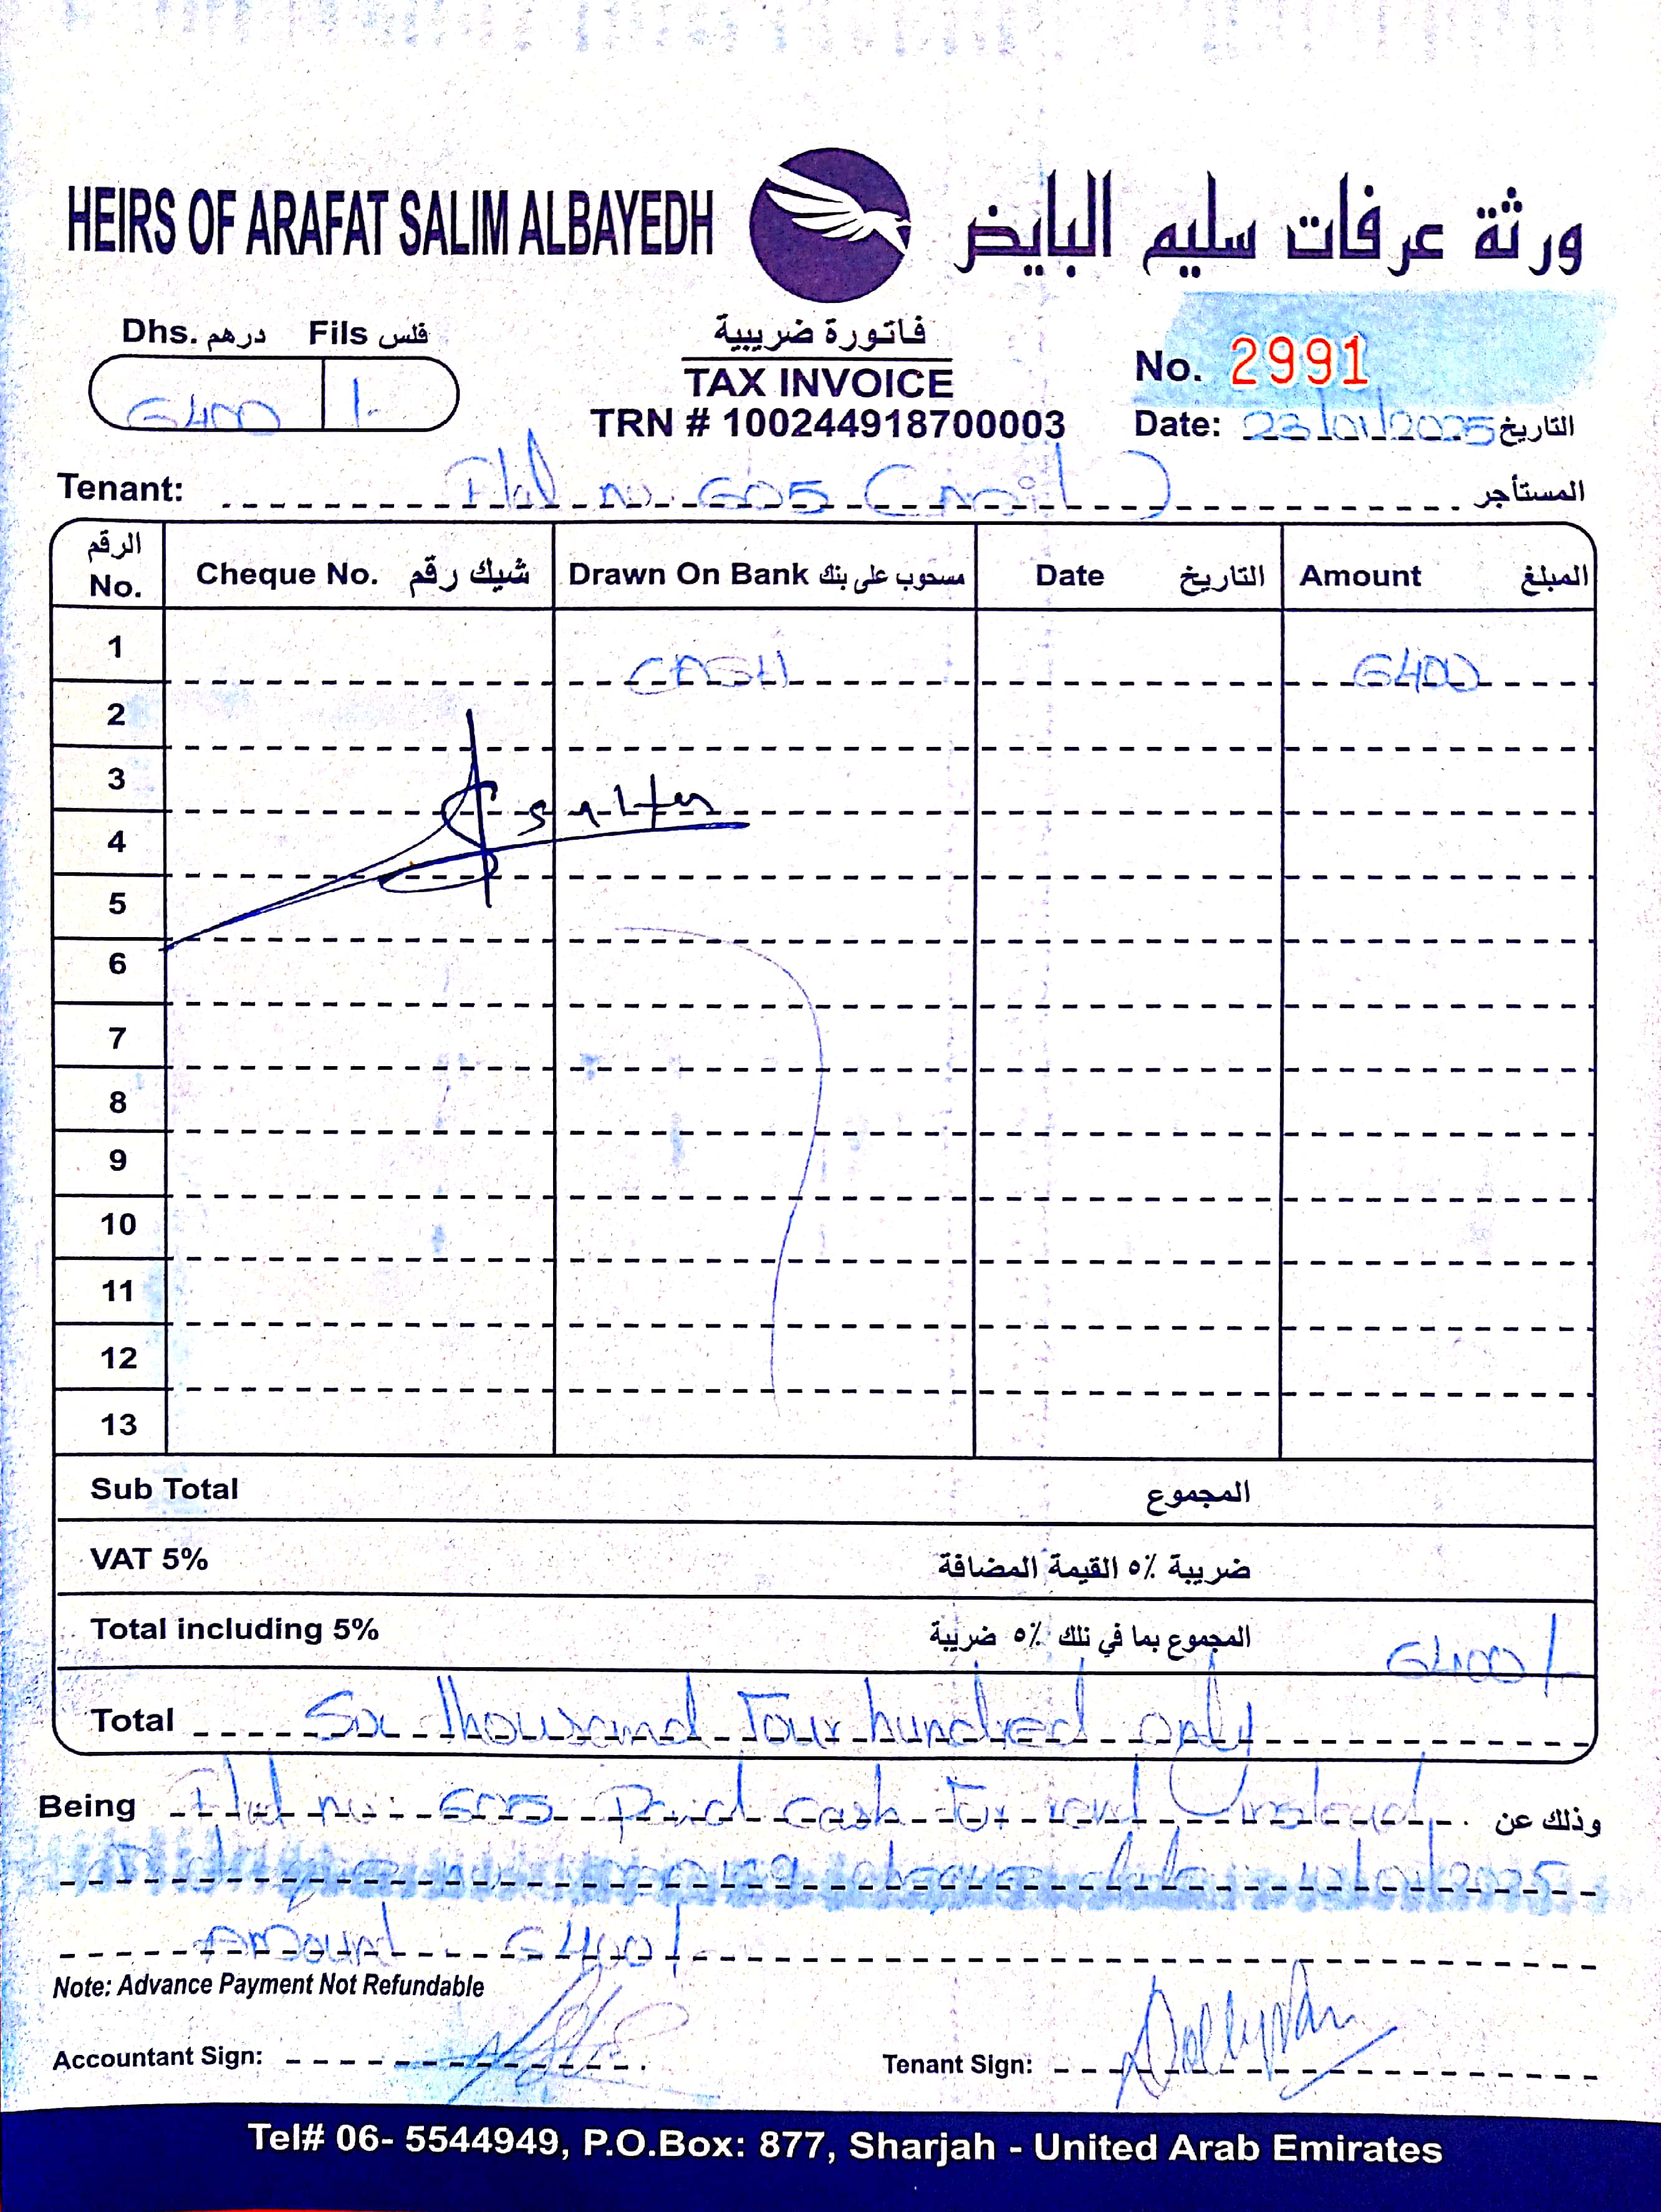 HEIRS OF ARAFAT SALIM ALBAYEDH
ورثة عرفات سليم البايض
Dhs. درهم Fils فلس
6400 /-
فاتورة ضريبية
TAX INVOICE
TRN # 100244918700003
No. 2991
Date: 23/01/2025 التاريخ
Tenant: Flat no: 605 المستأجر
الرقم No. Cheque No. شيك رقم Drawn On Bank مسحوب على بنك Date التاريخ Amount المبلغ
1 CASH 6400
2
3
4
5
6
7
8
9
10
11
12
13
Sub Total المجموع
VAT 5% ضريبة ٥٪ القيمة المضافة
Total including 5% المجموع بما في ذلك ٥٪ ضريبة 6400/-
Total Six Thousand Four hundred only
Being Flat no: 605 Paid cash For rent وذلك عن
cheque 2025
Amount 6400/-
Note: Advance Payment Not Refundable
Accountant Sign:
Tenant Sign:
Tel# 06- 5544949, P.O.Box: 877, Sharjah - United Arab Emirates